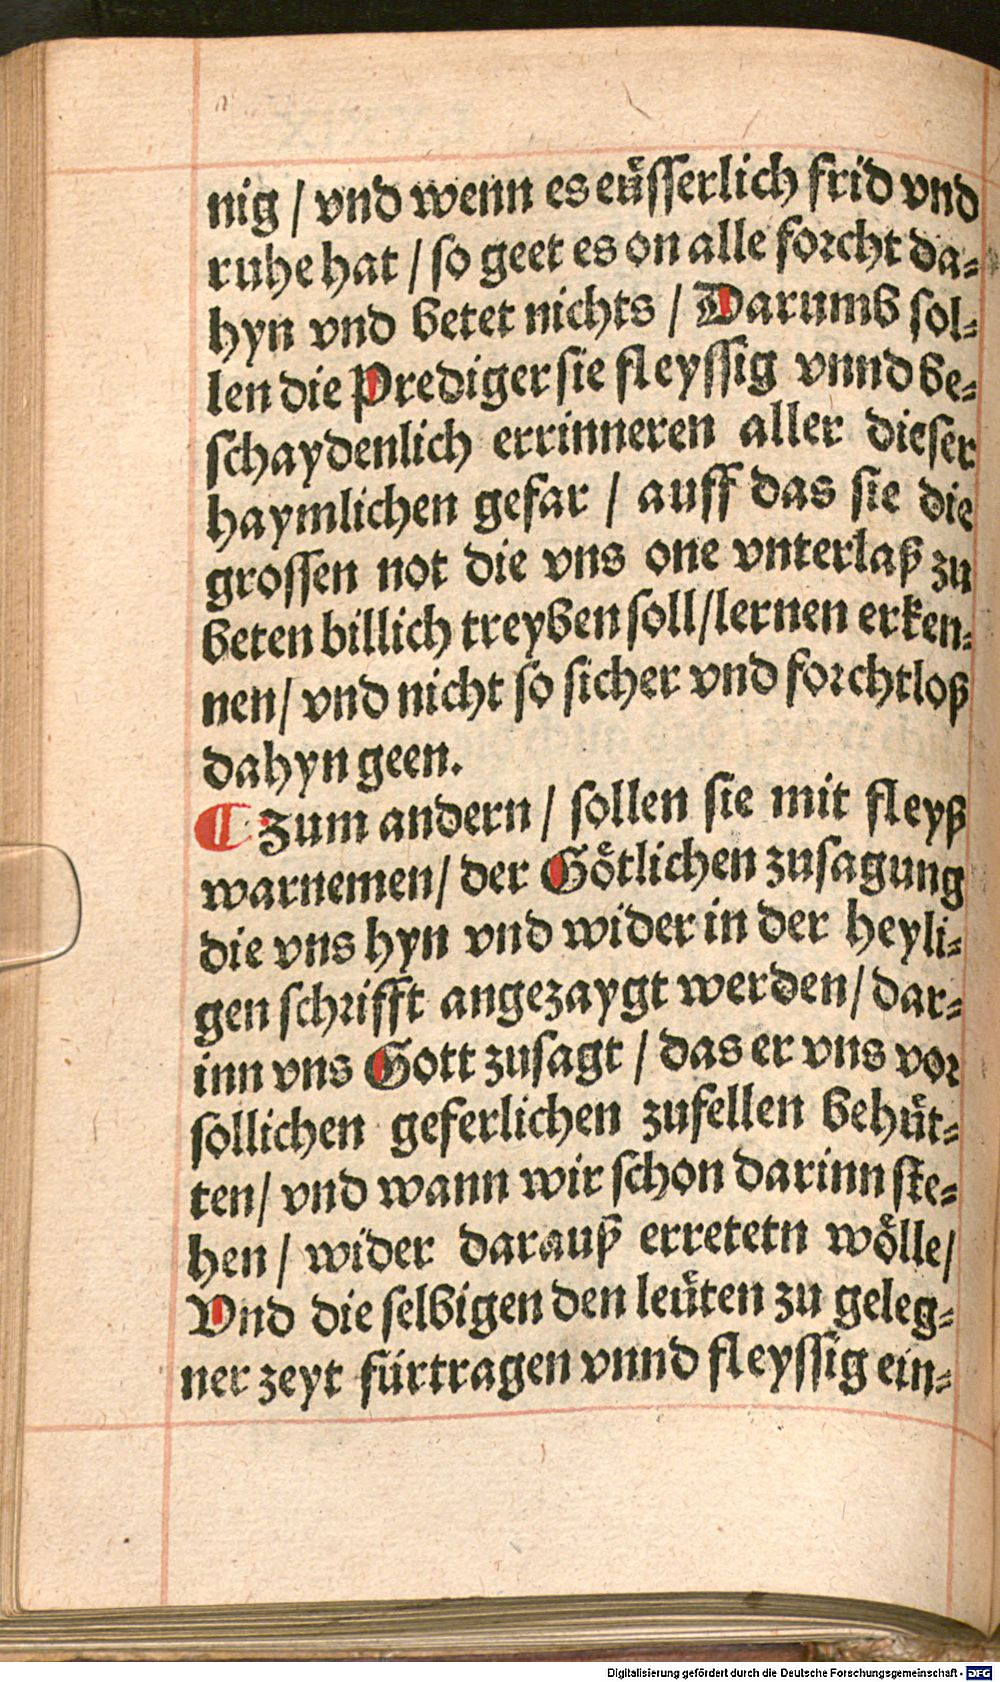 nig / vnd wenn es eüsserlich frid vnd
ruhe hat / so geet es on alle forcht da⸗
hyn vnd betet nichts / Darumb sol⸗
len die Prediger sie fleyssig vnnd be⸗
schaydenlich errinneren aller dieser
haymlichen gefar / auff das sie die
grossen not die vns one vnterlaß zu
beten billich treyben soll / lernen erken⸗
nen / vnd nicht so sicher vnd forchtloß
dahyn geen.
¶ Zum andern / sollen sie mit fleyß
warnemen / der Götlichen zusagung
die vns hyn vnd wider in der heyli⸗
gen schrifft angezaygt werden / dar⸗
inn vns Gott zusagt / das er vns vor
sollichen geferlichen zufellen behüt⸗
ten / vnd wann wir schon darinn ste⸗
hen / wider darauß erretetn wölle /
Vnd die selbigen den leüten zu geleg⸗
ner zeyt fürtragen vnnd fleyssig ein⸗
Digitalisierung gefördert durch die Deutsche Forschungsgemeinschaft - DFG